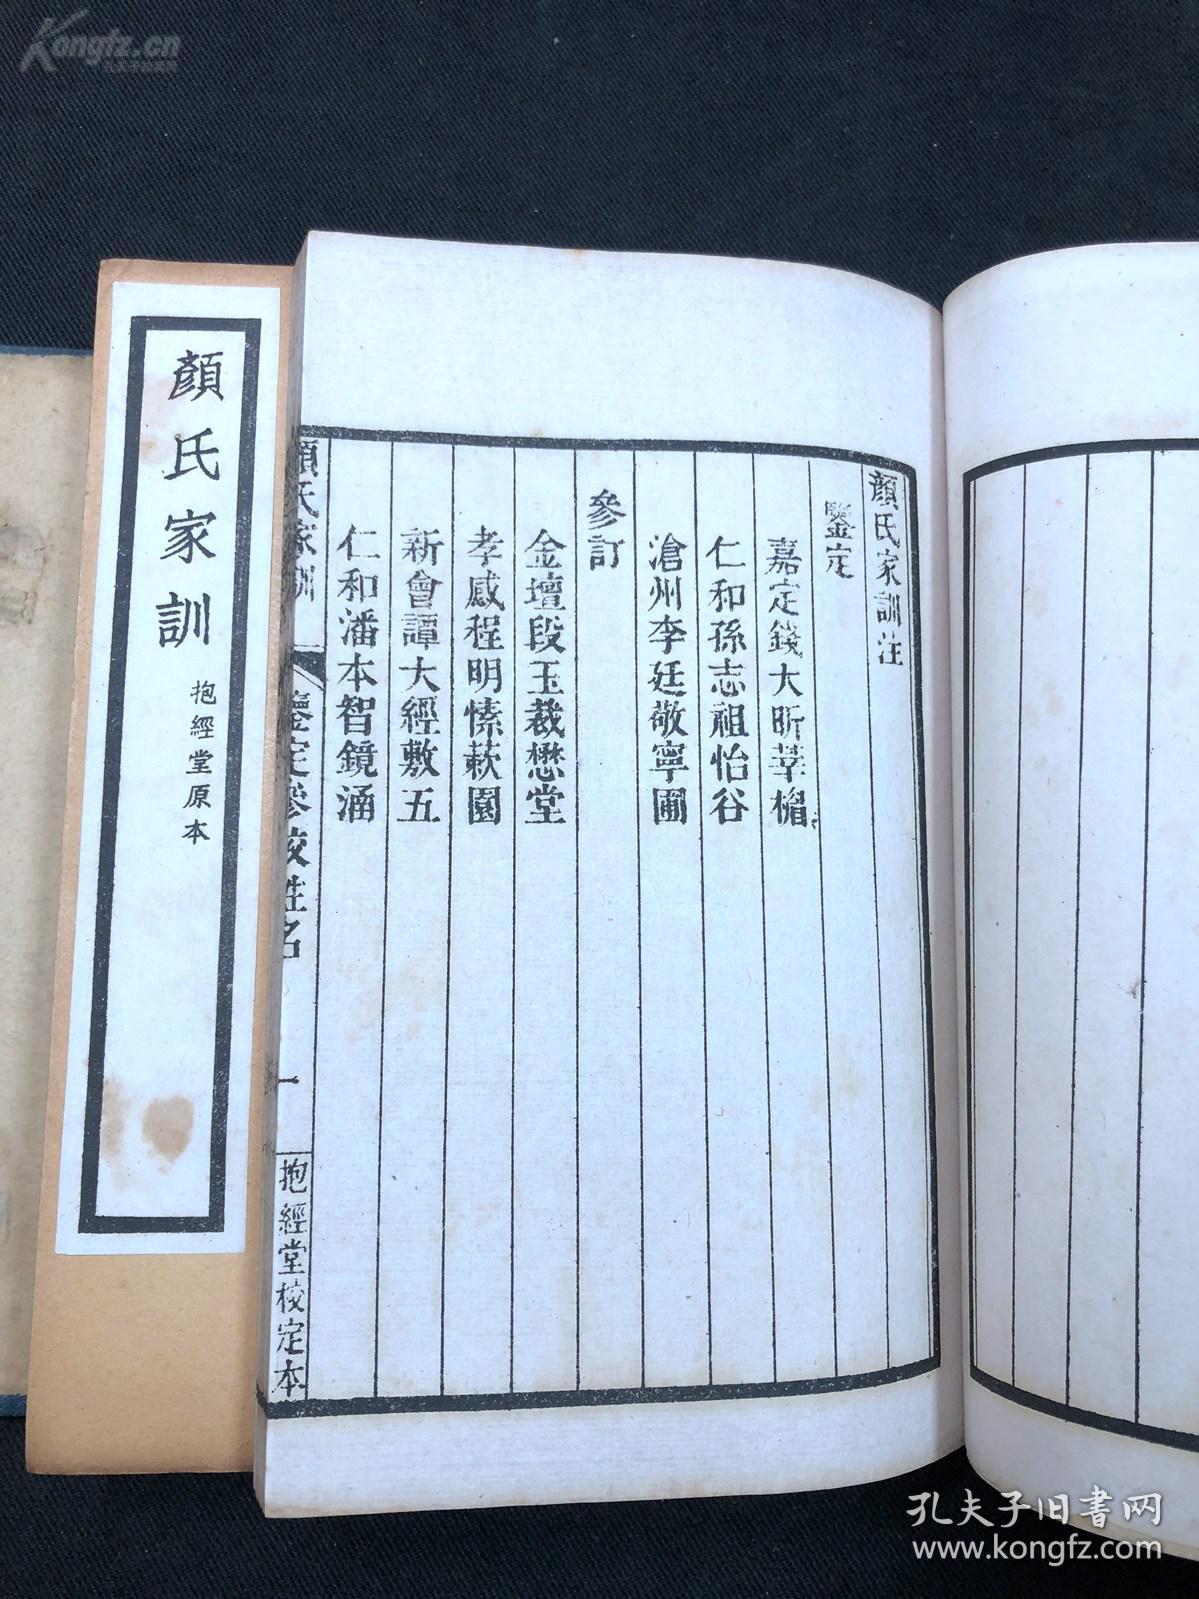 Kongfz.cn
孔夫子拍卖网
顏氏家訓注
鑒定
嘉定錢大昕莘楣
仁和孫志祖怡谷
滄州李廷敬寧圃
參訂
金壇段玉裁懋堂
孝感程明愫蔌園
新會譚大經敷五
仁和潘本智鏡涵
顏氏家訓
鑒定參校姓名
一
抱經堂校定本
顏氏家訓
抱經堂原本
孔夫子旧书网
www.kongfz.com